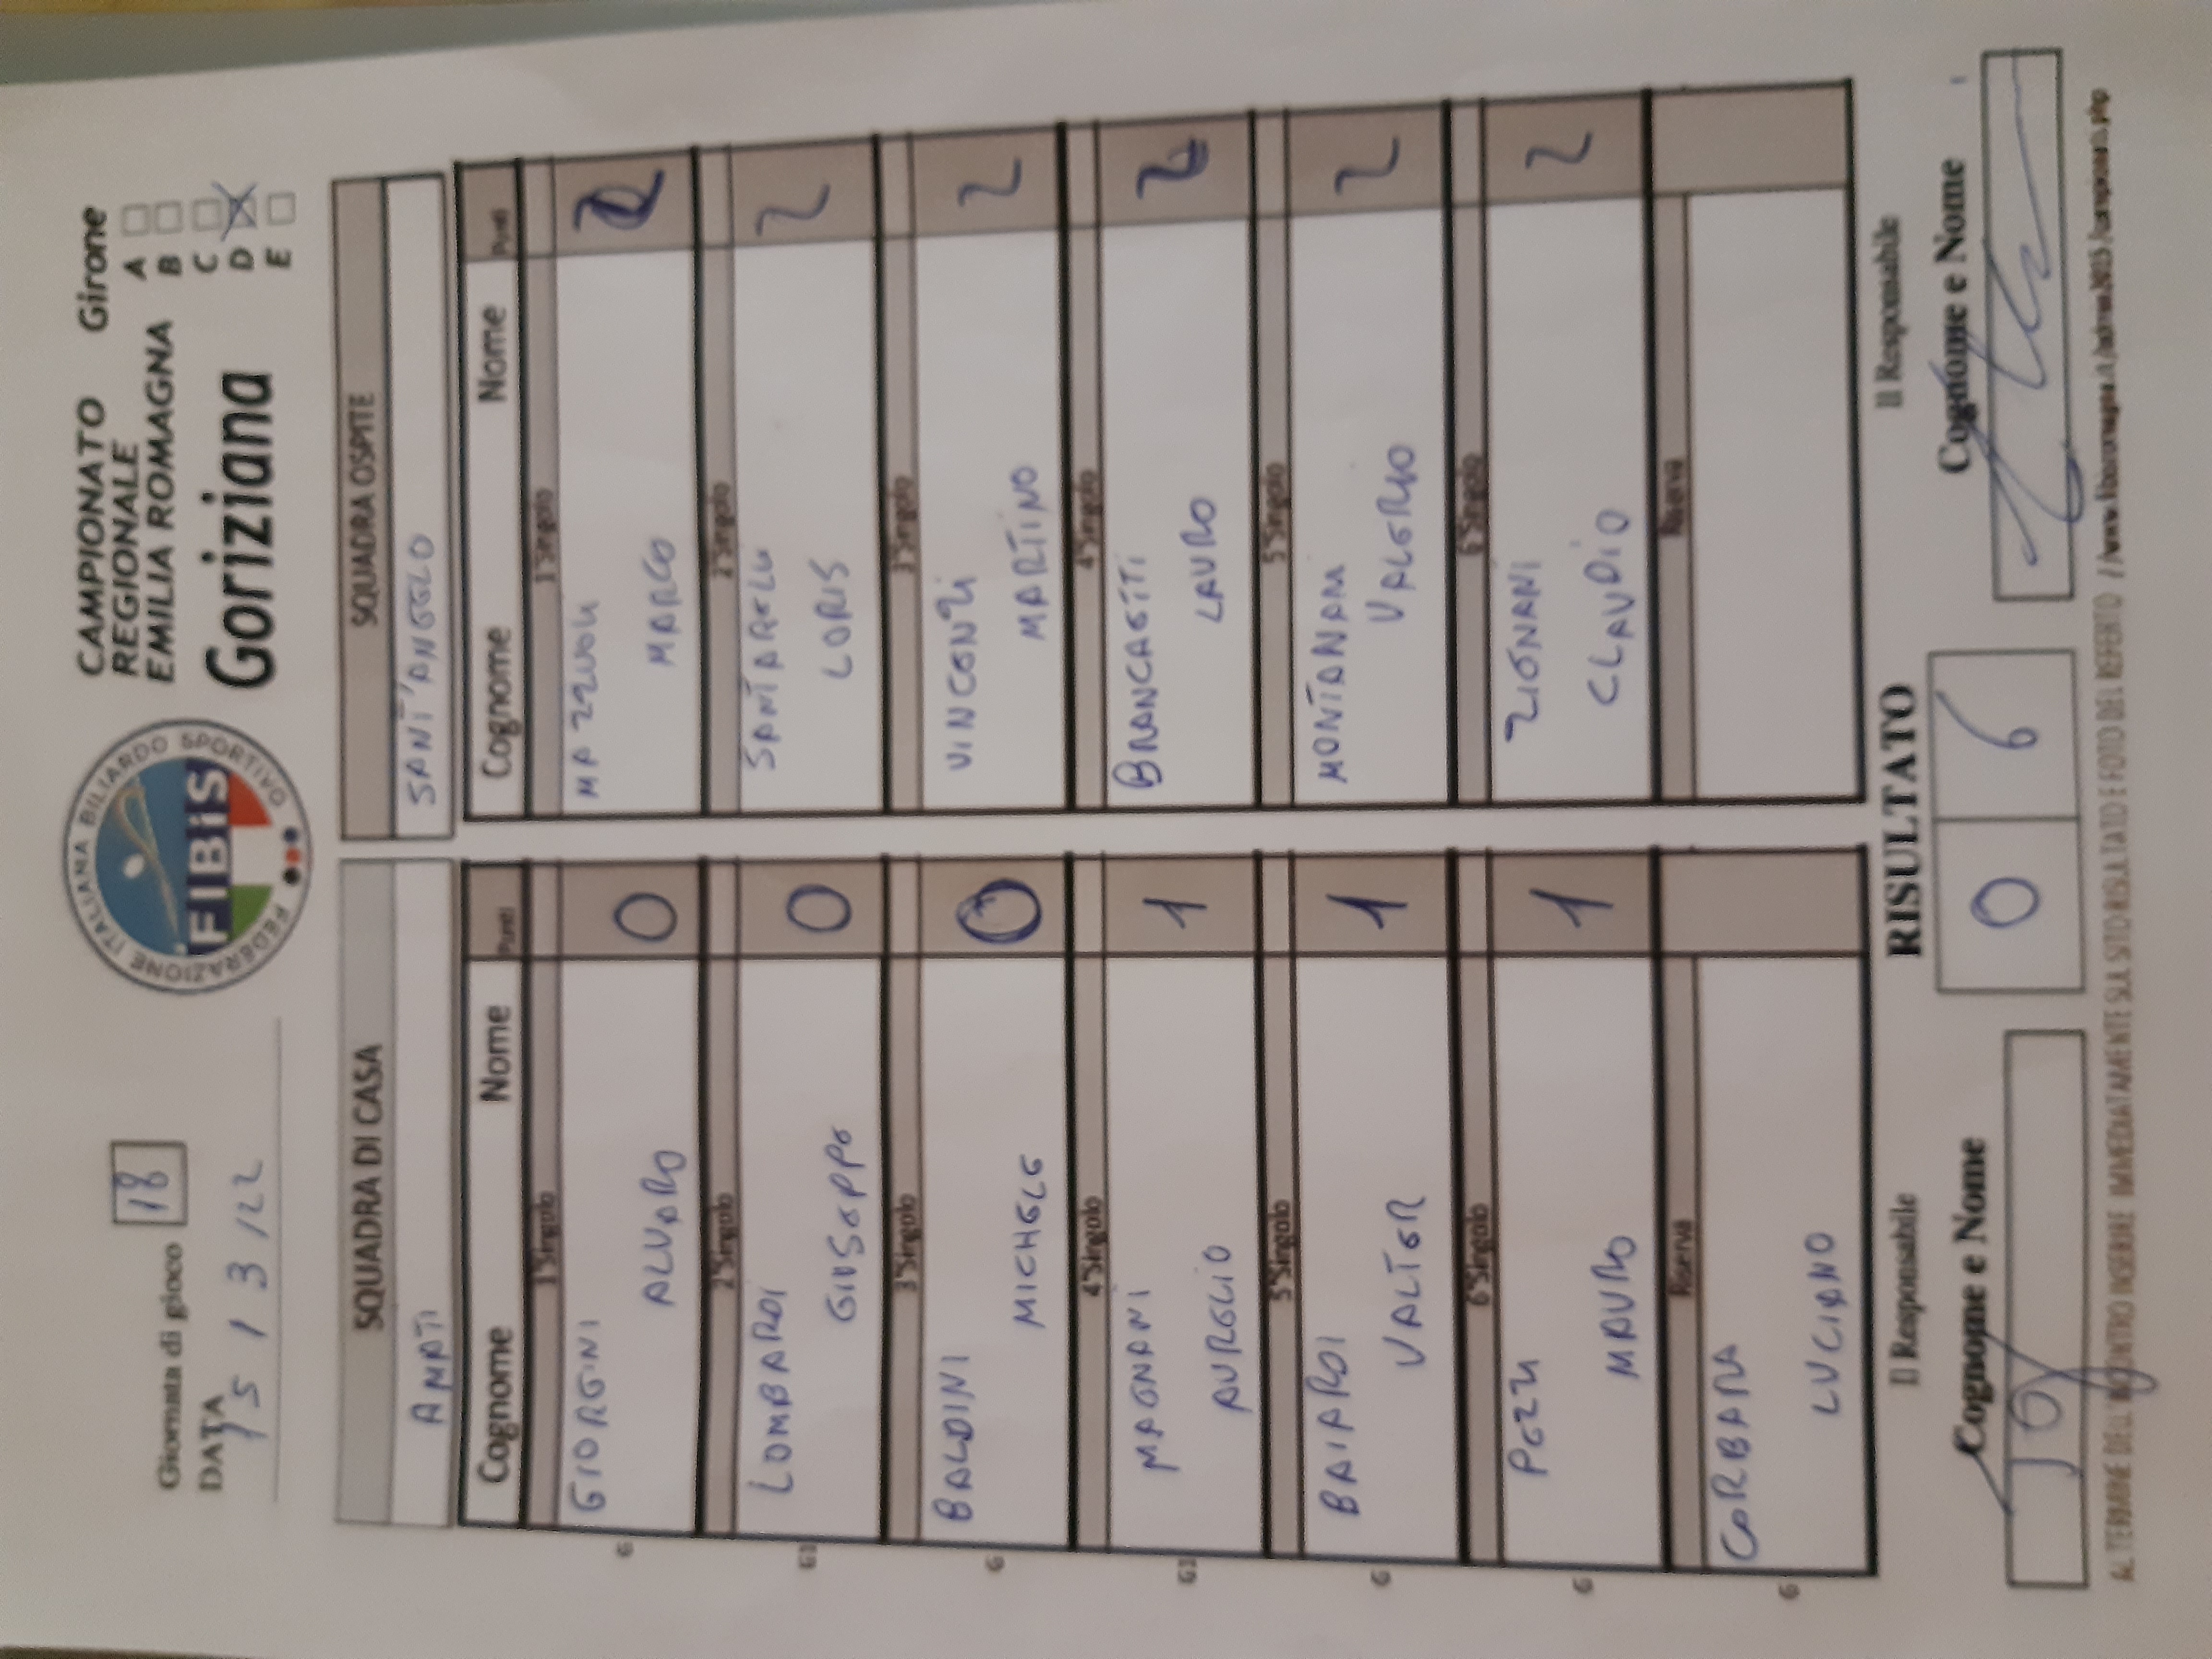 Giornata di gioco 18
DATA
15 / 3 / 22
FEDERAZIONE ITALIANA BILIARDO SPORTIVO
FIBiS
CAMPIONATO
REGIONALE
EMILIA ROMAGNA
Goriziana
Girone
A
B
C
D X
E
SQUADRA DI CASA
AMATI
Cognome Nome Punti
1°Singolo
GIORGINI
ALVARO 0
2°Singolo
LOMBARDI
GIUSEPPE 0
3°Singolo
BALDINI
MICHELE 0
4°Singolo
MAGNANI
AURELIO 1
5°Singolo
BAIARDI
VALTER 1
6°Singolo
PEZZI
MAURO 1
Riserva
CORBARA
LUCIANO
G
G1
G
G1
G
G
G
SQUADRA OSPITE
SANT'ANGELO
Cognome Nome Punti
1°Singolo
MAZZUOLI
MARCO 2
2°Singolo
SANTARELLI
LORIS 2
3°Singolo
VINCENZI
MARTINO 2
4°Singolo
BRANCALETTI
LAURO 2
5°Singolo
MONTANARI
VALERIO 2
6°Singolo
ZIGNANI
CLAUDIO 2
Riserva
Il Responsabile
Cognome e Nome
RISULTATO
0 6
Il Responsabile
Cognome e Nome
AL TERMINE DELL'INCONTRO INSERIRE IMMEDIATAMENTE SUL SITO RISULTATO E FOTO DEL REFERTO